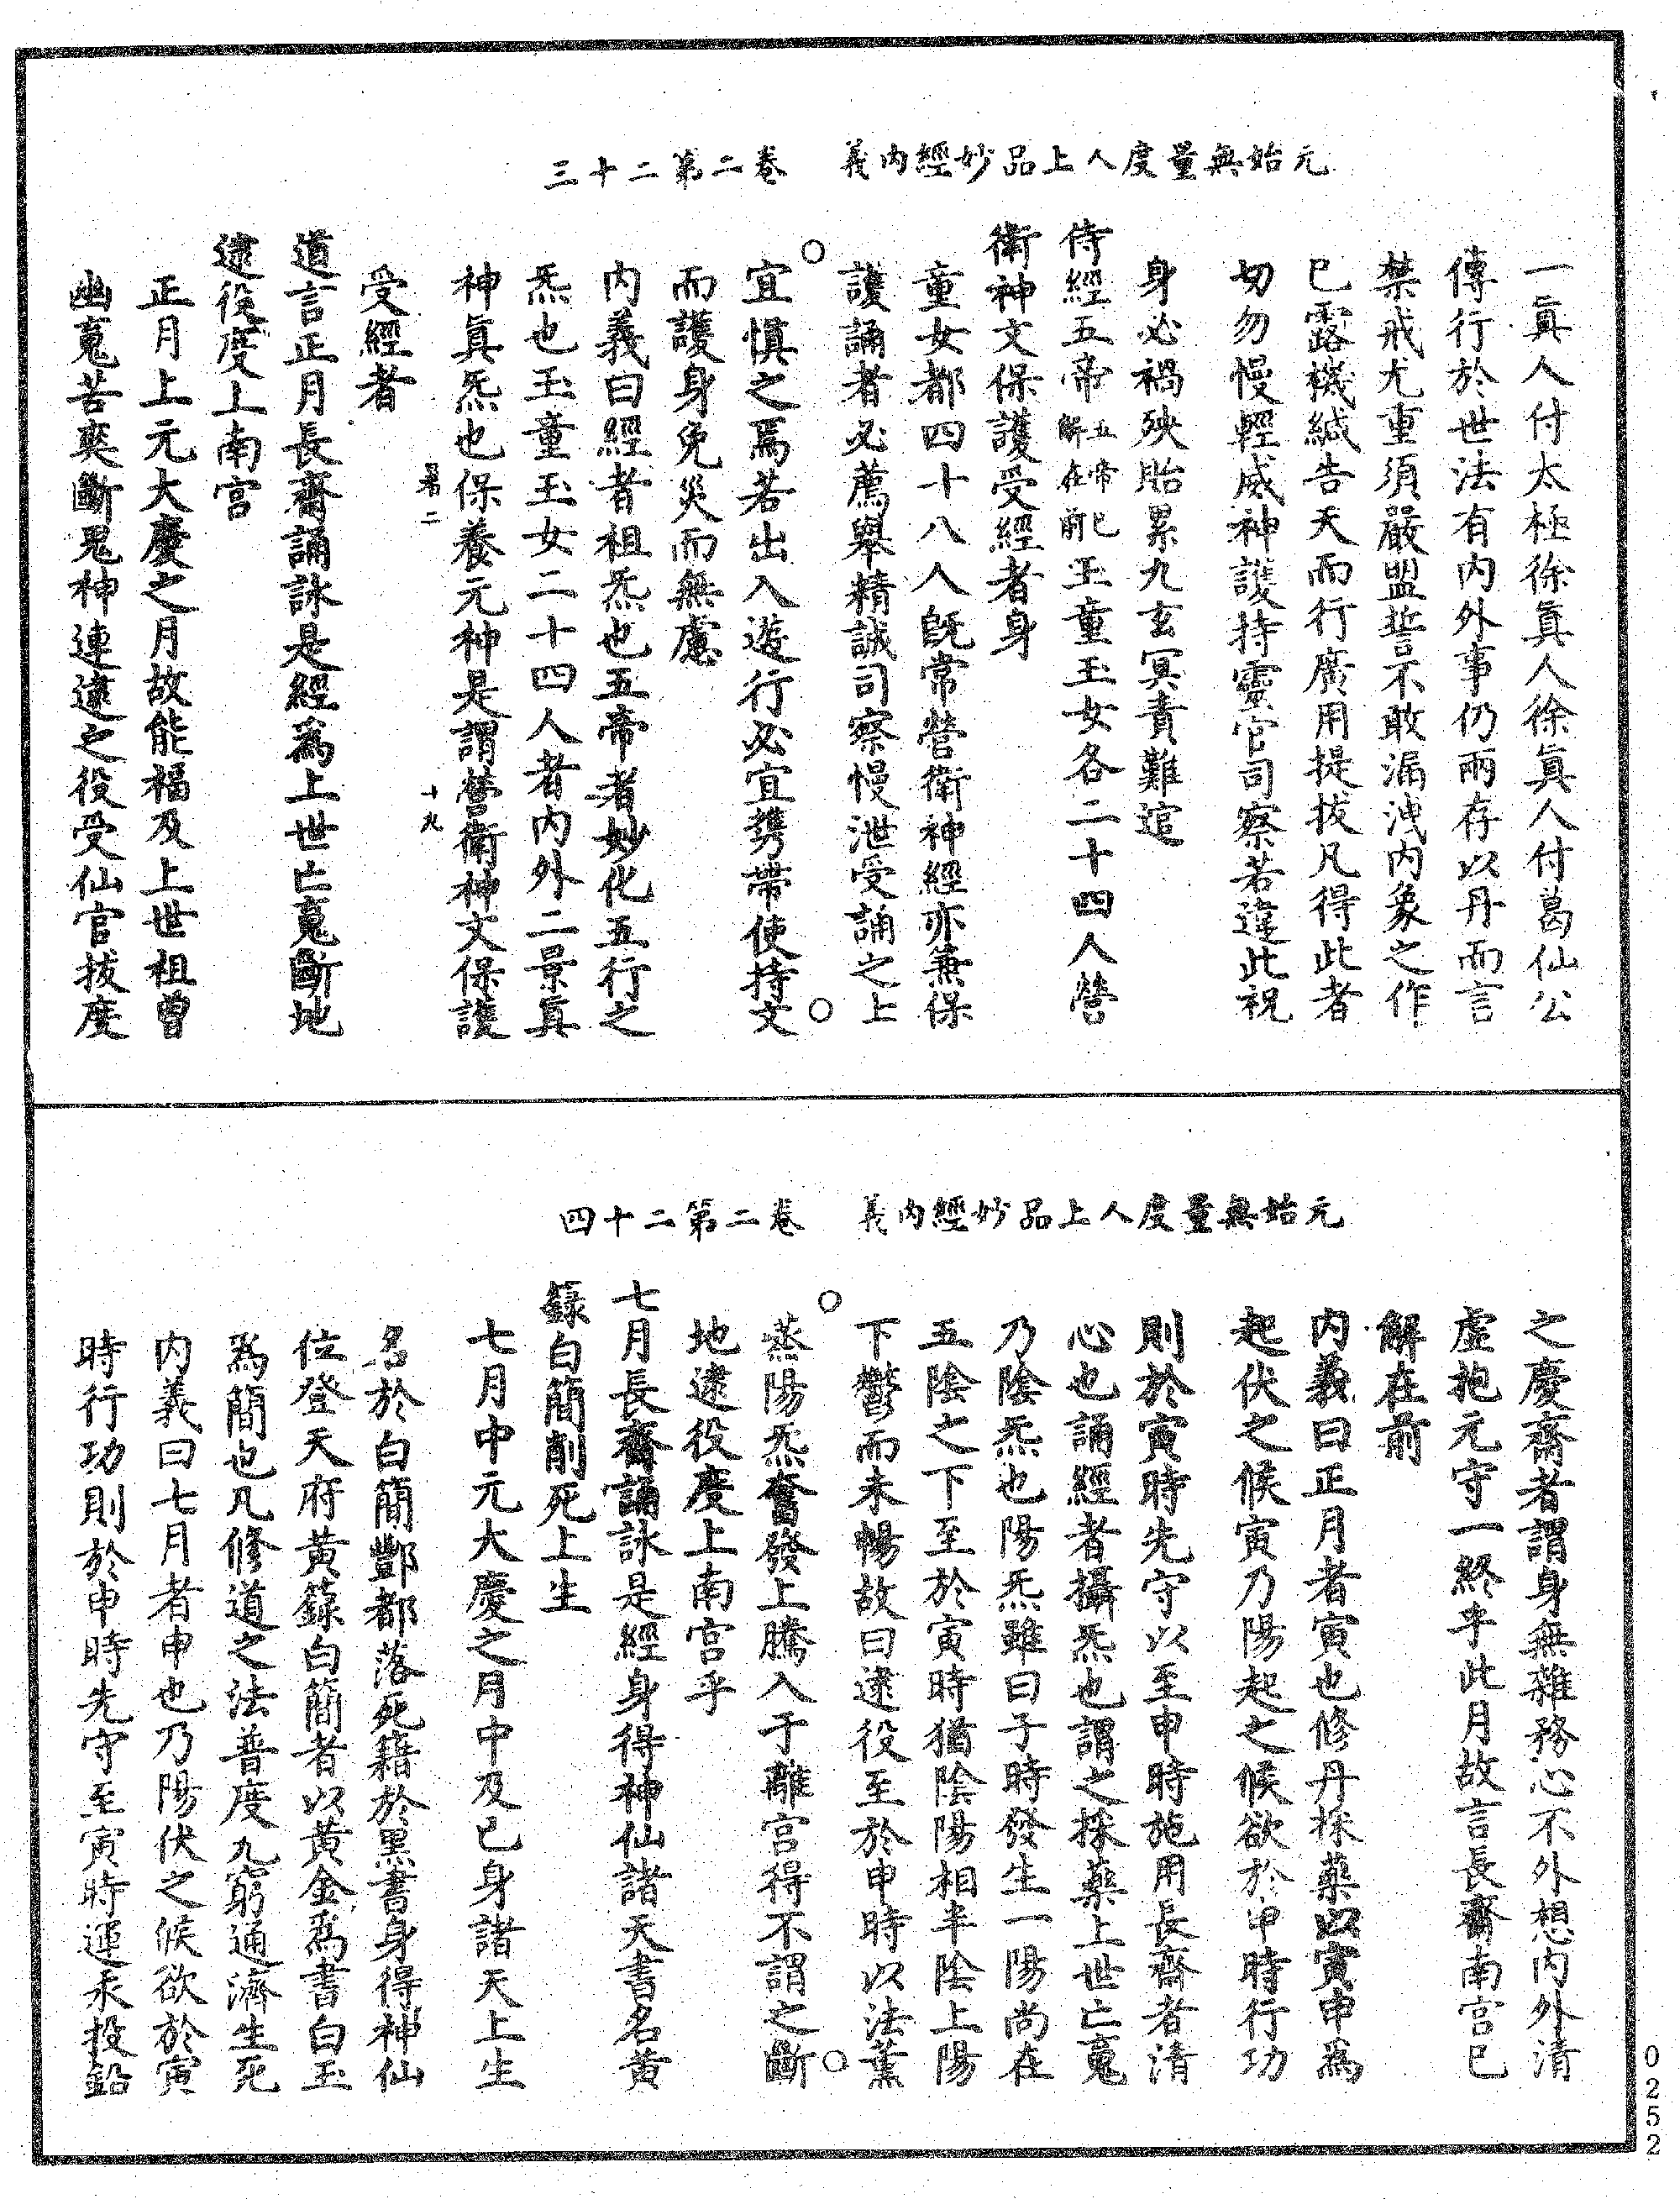 元始無量度人上品妙經內義　卷二第二十三
一眞人付太極徐眞人徐眞人付葛仙公
傳行於世法有內外事仍兩存以丹而言
禁戒尤重須嚴盟誓不敢漏洩內象之作
已露機緘告天而行廣用提拔凡得此者
切勿慢輕威神護持靈官司察若違此祝
身必禍殃貽累九玄冥責難逭
侍經五帝五帝已解在前玉童玉女各二十四人營
衛神文保護受經者身
童女都四十八人旣常營衛神經亦兼保
護誦者必薦舉精誠司察慢泄受誦之上
宜慎之焉若出入遊行必宜携帶使持文
而護身免災而無慮
內義曰經者祖炁也五帝者妙化五行之
炁也玉童玉女二十四人者內外二景眞
神眞炁也保養元神是謂營衛神文保護
暑二　十九
受經者
道言正月長齋誦詠是經爲上世亡䰟斷地
逮役度上南宮
正月上元大慶之月故能福及上世祖曾
幽䰟苦爽斷鬼神連逮之役受仙官拔度
元始無量度人上品妙經內義　卷二第二十四
之慶齋者謂身無雜務心不外想內外清
虛抱元守一終乎此月故言長齋南宮已
解在前
內義曰正月者寅也修丹採藥以寅申爲
起伏之候寅乃陽起之候欲於申時行功
則於寅時先守以至申時施用長齋者清
心也誦經者攝炁也謂之採藥上世亡䰟
乃陰炁也陽炁雖曰子時發生一陽尚在
五陰之下至於寅時猶陰陽相半陰上陽
下鬱而未暢故曰逮役至於申時以法薰
蒸陽炁奮發上騰入于離宮得不謂之斷
地逮役度上南宮乎
七月長齋誦詠是經身得神仙諸天書名黃
籙白簡削死上生
七月中元大慶之月中及已身諸天上生
名於白簡酆都落死籍於黑書身得神仙
位登天府黃籙白簡者以黃金爲書白玉
爲簡也凡修道之法普度九窮通濟生死
內義曰七月者申也乃陽伏之候欲於寅
時行功則於申時先守至寅時運汞投鉛
0252